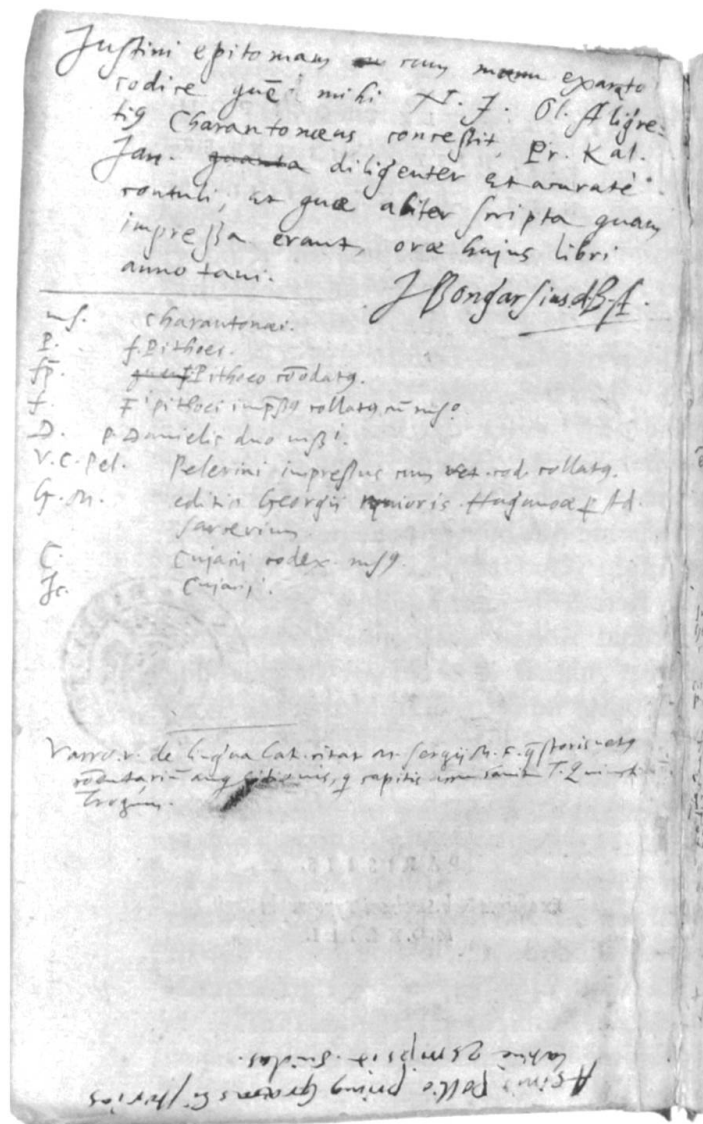 Justini epitomam cum manu exarato
codice quē mihi N. J. Ol. Aligre-
tig Charantonæus concessit, Pr. Kal.
Jan. quanta diligenter et acurate
contuli, et quæ aliter scripta quam
impressa erant, oræ hujus libri
annotavi.
JBongarsius d. B. A.
ms. Charantonæi.
P. f. Pithoei.
fp. Pithoeo cōdatq.
f. F. Pithoei impssq collatq cū ms°
D. P Danielis duo mssi.
V. C. Pel. Pelerini impressus cum vet. cod. collatq.
G. M. editio Georgii maioris. Haganoæ p Ad.
C. Cujacii codex msq.
Jc. Cujacii.
Varro. v. de lingua lat. citat M. Sergii M. F. qstoris
T. Quincti
Trogum.
Asini Pollio
latine Suidas.